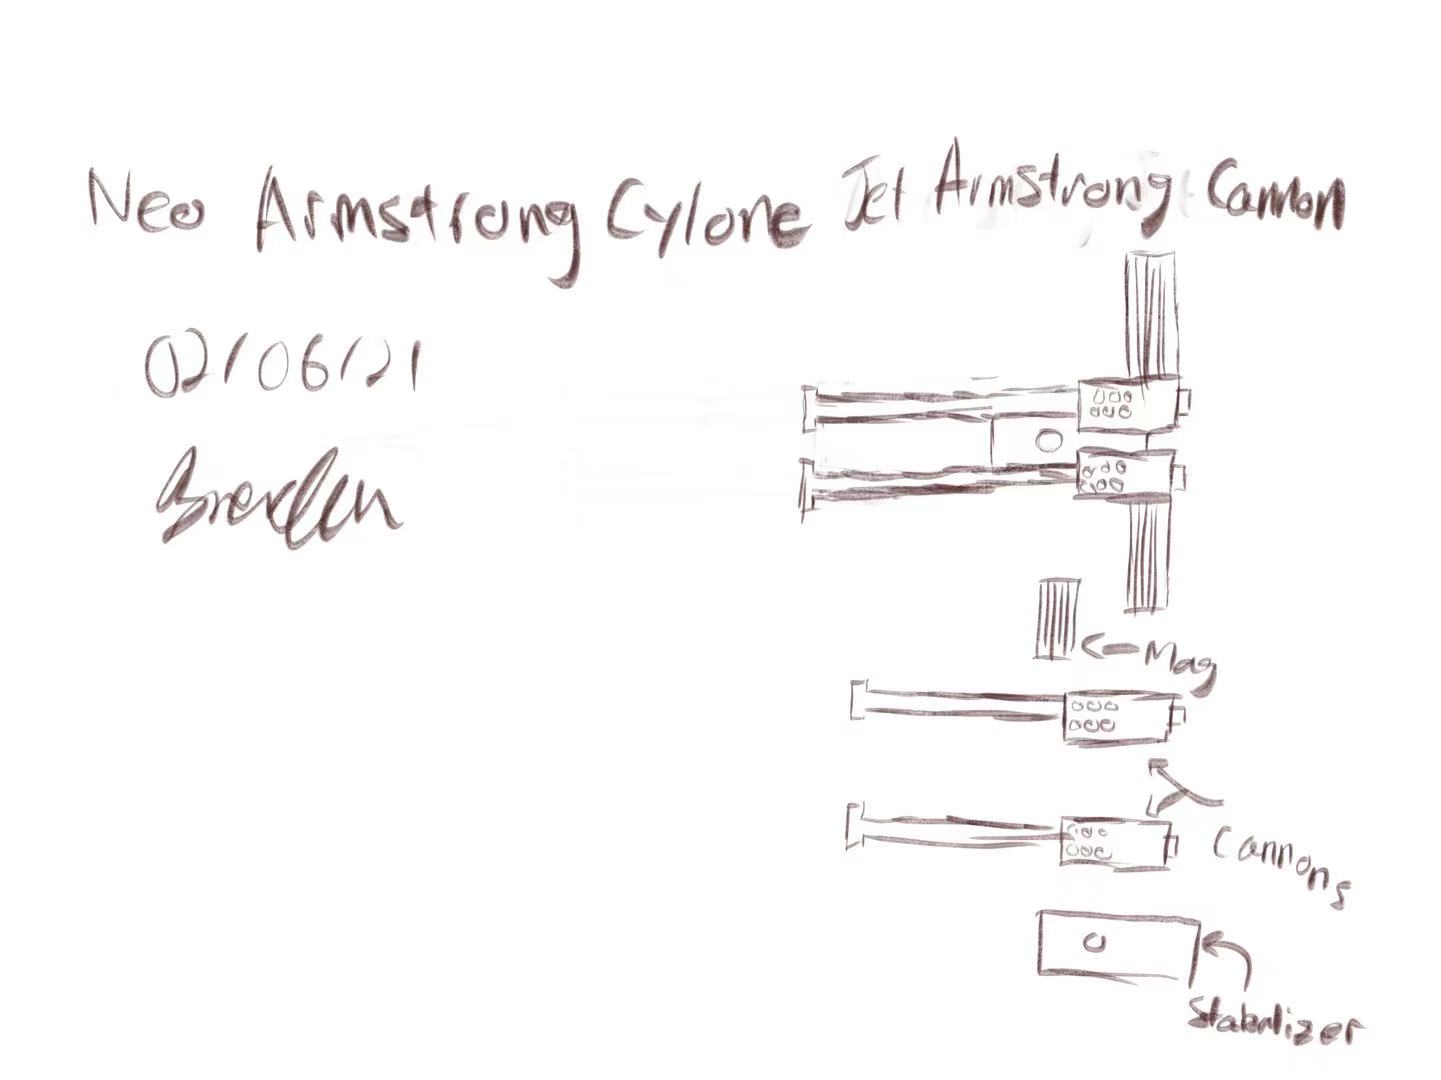 Neo Armstrong Cylone Jet Armstrong Cannon
02/06/21
Mag
Cannons
Stabalizer